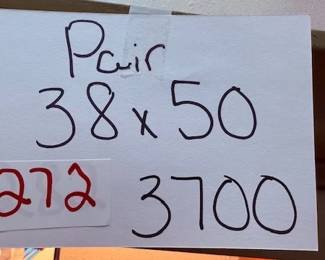 Pair
38 x 50
272
3700